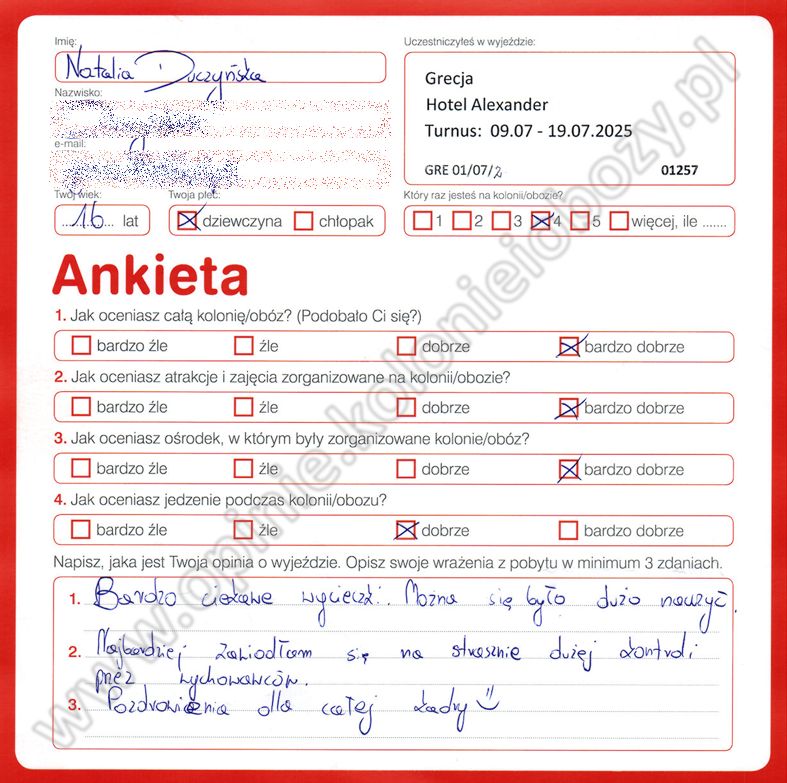 Imię:
Natalia Duczyńska
Nazwisko:
e-mail:
Twój wiek:
16 lat
Twoja płeć:
dziewczyna chłopak
Uczestniczyłeś w wyjeździe:
Grecja
Hotel Alexander
Turnus: 09.07 - 19.07.2025
GRE 01/07/2 01257
Który raz jesteś na kolonii/obozie?
1 2 3 4 5 więcej, ile .......
Ankieta
1. Jak oceniasz całą kolonię/obóz? (Podobało Ci się?)
bardzo źle źle dobrze bardzo dobrze
2. Jak oceniasz atrakcje i zajęcia zorganizowane na kolonii/obozie?
bardzo źle źle dobrze bardzo dobrze
3. Jak oceniasz ośrodek, w którym były zorganizowane kolonie/obóz?
bardzo źle źle dobrze bardzo dobrze
4. Jak oceniasz jedzenie podczas kolonii/obozu?
bardzo źle źle dobrze bardzo dobrze
Napisz, jaka jest Twoja opinia o wyjeździe. Opisz swoje wrażenia z pobytu w minimum 3 zdaniach.
1. Bardzo ciekawe wycieczki. Można się było dużo nauczyć.
2. Najbardziej zawiodłam się na strasznie dużej kontroli
przez wychowawców.
3. Pozdrowienia dla całej kadry
www.opinie.kolonieiobozy.pl